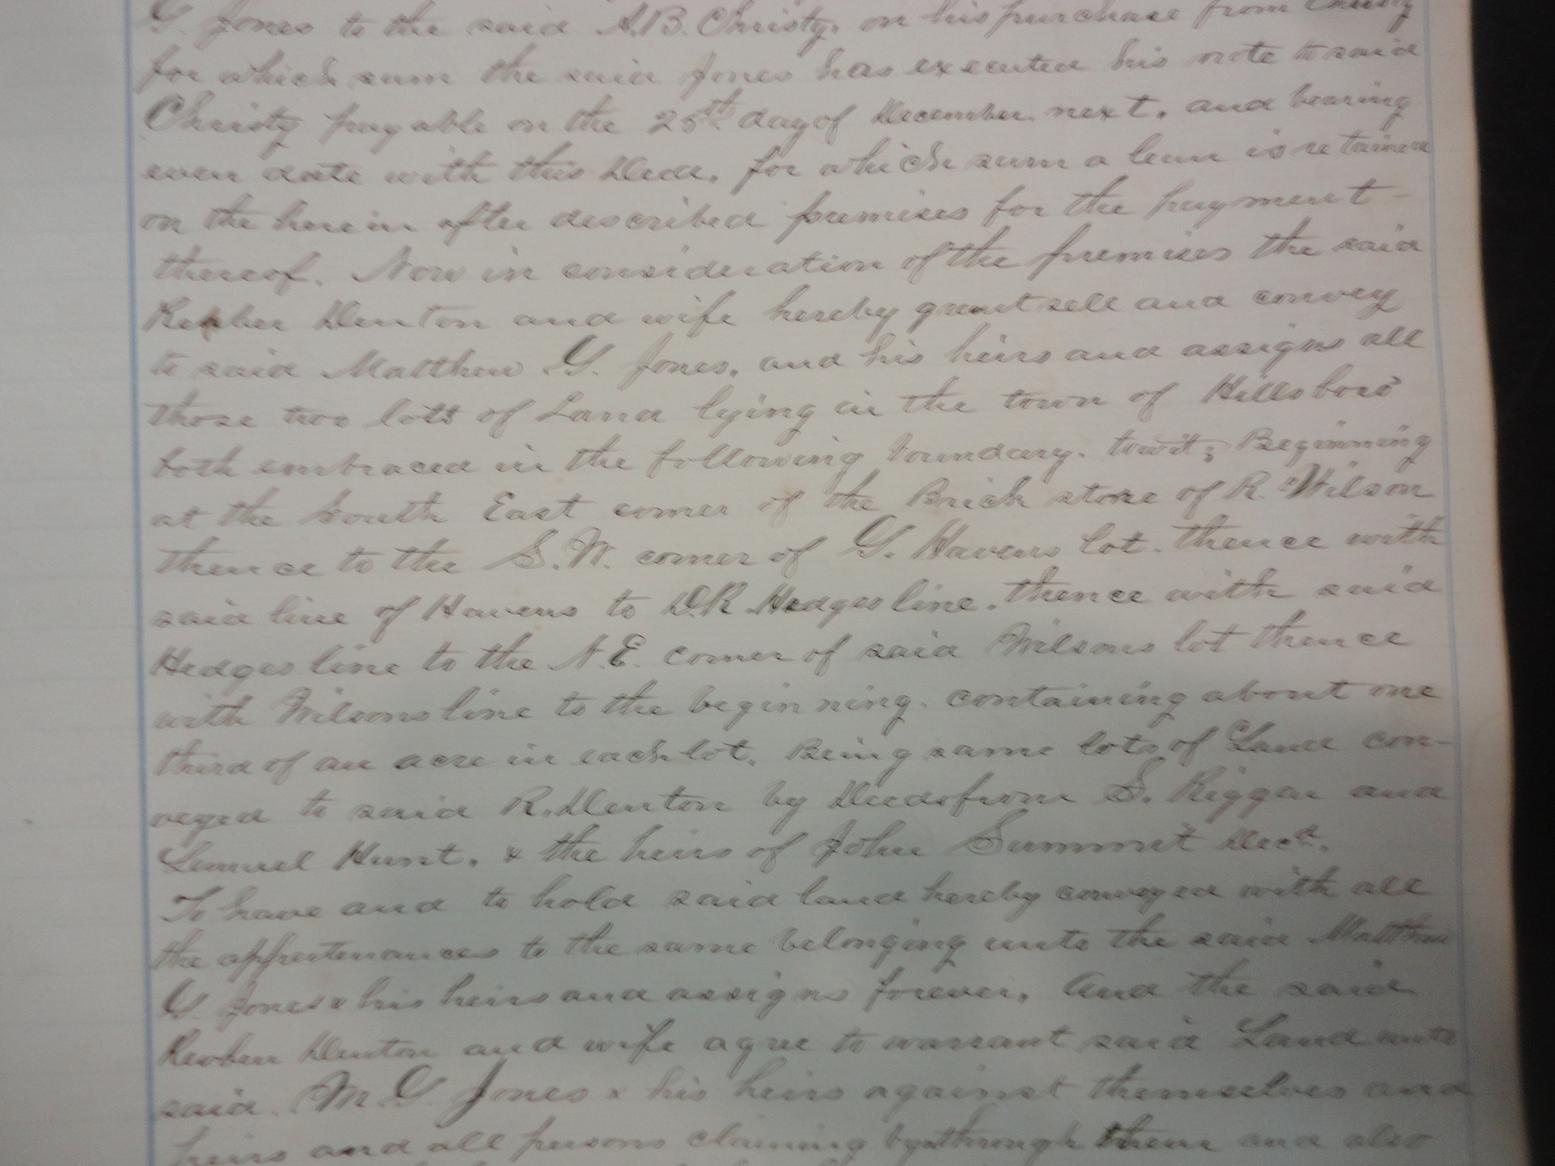 G. Jones to the said A.B. Christy, on his purchase from Christy
for which sum the said Jones has executed his note to said
Christy payable on the 25th day of December next, and bearing
even date with this Deed, for which sum a lean is retained
on the herein after described premises for the payment
thereof. Now in consideration of the premises the said
Reuben Denton and wife hereby grant sell and convey
to said Matthew G. Jones, and his heirs and assigns all
those two lots of Land lying in the town of Hillsboro
both embraced in the following boundary. towit; Beginning
at the South East corner of the Brick store of R. Wilson
thence to the S.W. corner of G. Havens lot. thence with
said line of Havens to D.R. Hedges line. thence with said
Hedges line to the N.E. corner of said Wilsons lot thence
with Wilsons line to the beginning. containing about one
third of an acre in each lot. Being same lots of Land con-
veyed to said R. Denton by Deeds from S. Riggan and
Lemuel Hunt. & the heirs of John Summit Decd.
To have and to hold said land hereby conveyed with all
the appurtenances to the same belonging unto the said Matthew
G. Jones & his heirs and assigns forever. And the said
Reuben Denton and wife agree to warrant said Land unto
said M.G. Jones & his heirs against themselves and
heirs and all persons claiming by & through them and also